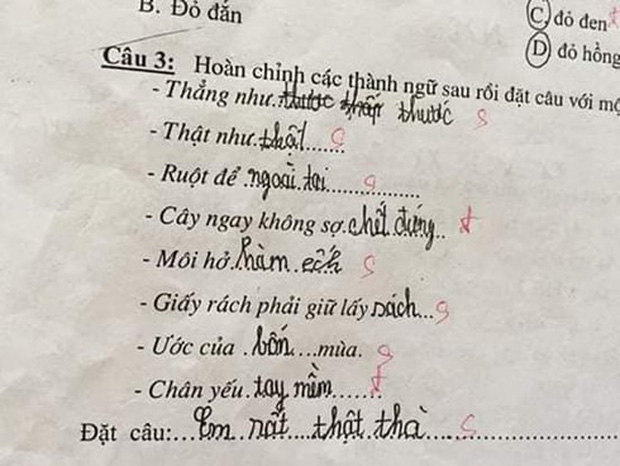 B. Đỏ đắn
C. đỏ đen đ
D. đỏ hồng
Câu 3: Hoàn chỉnh các thành ngữ sau rồi đặt câu với mộ
- Thẳng như thước s
- Thật như.thật...... s
- Ruột để .ngoài.tai............... s
- Cây ngay không sợ.chết.đứng.. đ
- Môi hở.hàm.ếch s
- Giấy rách phải giữ lấy sách... s
- Ước của .bốn...mùa. s
- Chân yếu.tay mềm....... đ
Đặt câu:...Em rất....thật thà.... s..................